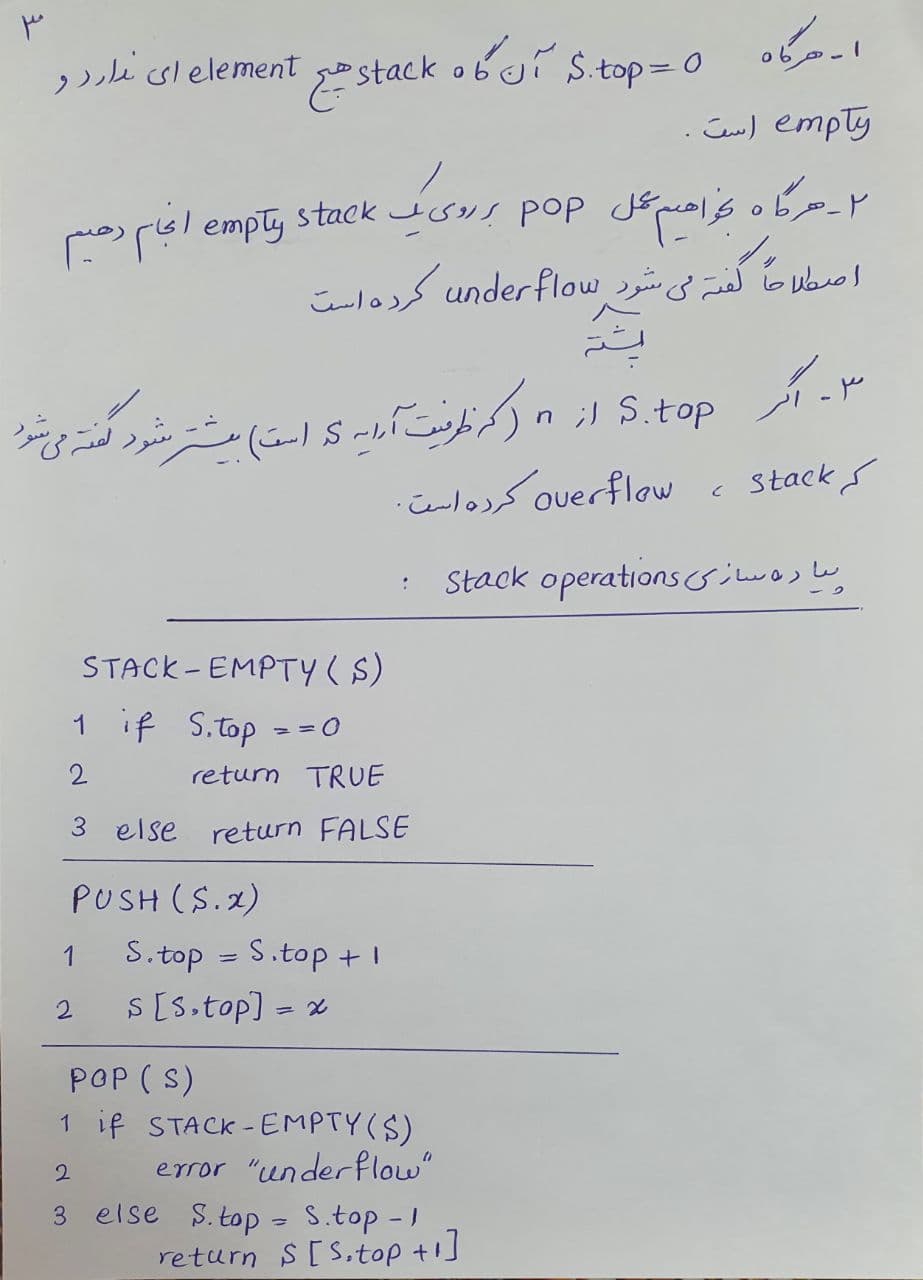 ۳
۱- هرگاه S.top = 0 آن گاه stack هیچ element ای ندارد و
empty است.
۲- هرگاه بخواهیم عمل pop بر روی یک empty stack انجام دهیم
اصطلاحاً گفته می شود underflow کرده است
پشته
۳- اگر S.top از n (که ظرفیت آرایه S است) بیشتر شود گفته می شود
که stack ، overflow کرده است.
پیاده سازی stack operations :
STACK-EMPTY(S)
1 if S.top == 0
2 return TRUE
3 else return FALSE
PUSH(S.x)
1 S.top = S.top + 1
2 S[S.top] = x
POP(S)
1 if STACK-EMPTY(S)
2 error "underflow"
3 else S.top = S.top - 1
return S[S.top + 1]